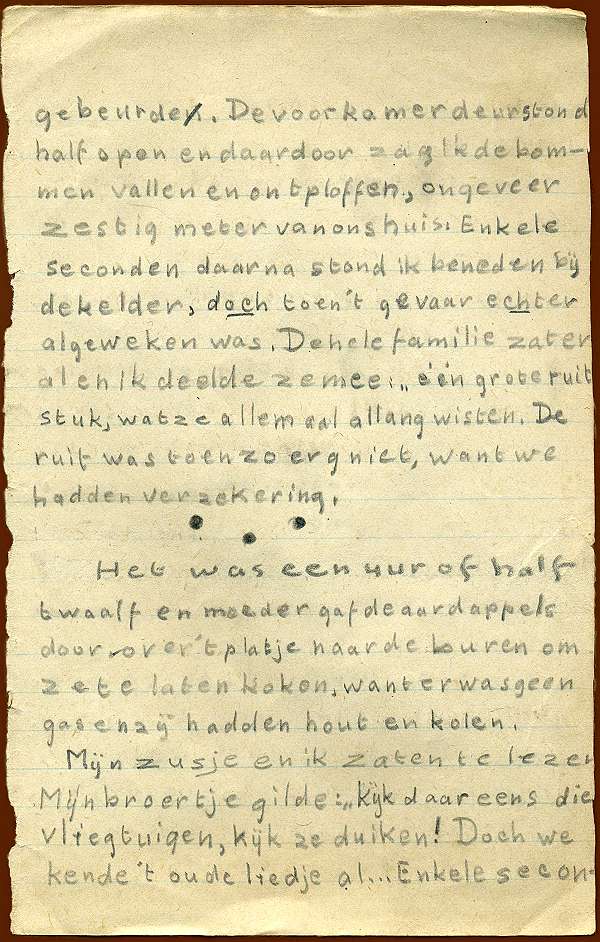 gebeurden. De voorkamerdeur stond
half open en daardoor zag ik de bom-
men vallen en ontploffen, ongeveer
zestig meter van ons huis. Enkele
seconden daarna stond ik beneden bij
de kelder, doch toen 't gevaar echter
al geweken was. De hele familie zat er
al en ik deelde ze mee: „één grote ruit
stuk, wat ze allemaal allang wisten. De
ruit was toen zo erg niet, want we
hadden verzekering.
Het was een uur of half
twaalf en moeder gaf de aardappels
door over 't platje naar de buren om
ze te laten koken, want er was geen
gas en zij hadden hout en kolen.
Mijn zusje en ik zaten te lezen
Mijn broertje gilde: „Kijk daar eens die
vliegtuigen, kijk ze duiken! Doch we
kende 't oude liedje al... Enkele secon-